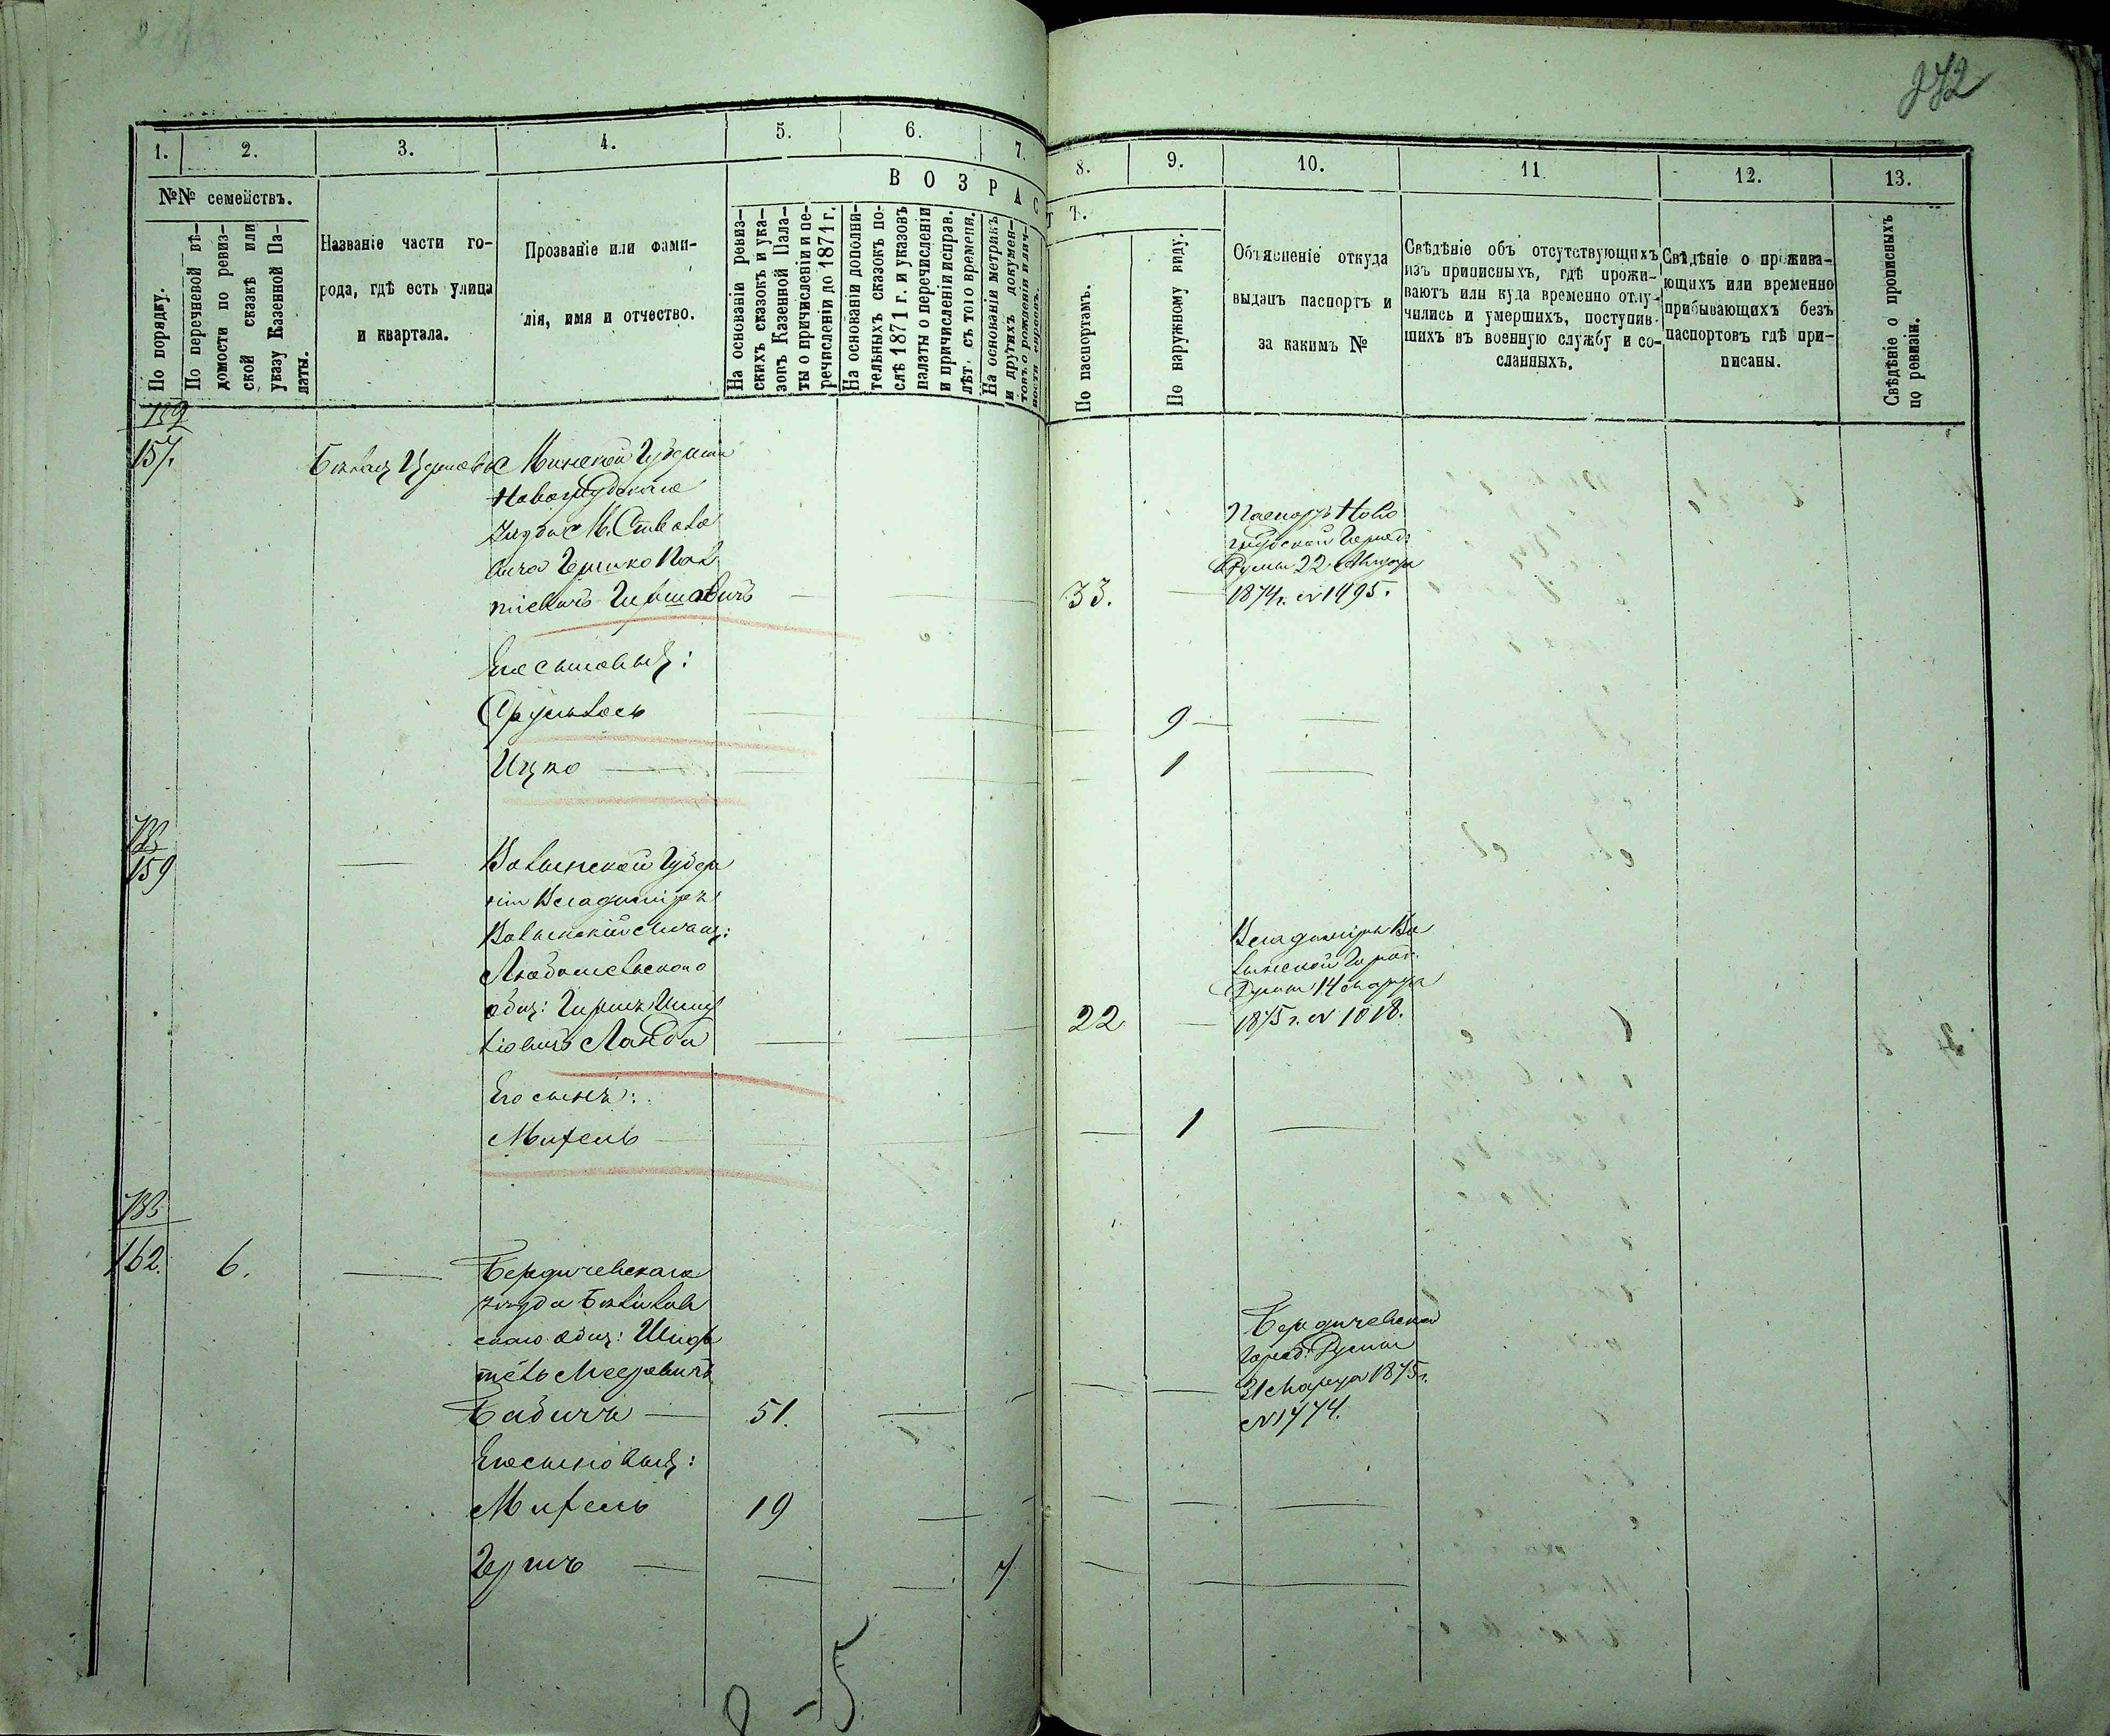 272
1.
2.
3.
4.
5.
6.
7.
8.
9.
10.
11.
12.
13.
№№ семействъ.
По порядку.
По перечневой вѣ-
домости по ревиз-
ской сказкѣ или
указу Казенной Па-
латы.
Названіе части го-
рода, гдѣ есть улица
и квартала.
Прозваніе или фами-
лія, имя и отчество.
ВОЗРАСТЪ.
На основаніи ревиз-
скихъ сказокъ и ука-
зовъ Казенной Пала-
ты о причисленіи и пе-
речисленіи до 1871 г.
На основаніи дополни-
тельныхъ сказокъ по-
слѣ 1871 г. и указовъ
палаты о перечисленіи
и причисленіи исправ.
лѣт. съ того времени.
На основаніи метрикъ
и другихъ докумен-
товъ о рожденіи и лич-
ности евреевъ.
По паспортамъ.
По наружному виду.
Объясненіе откуда
выданъ паспортъ и
за какимъ №
Свѣдѣніе объ отсутствующихъ
изъ приписныхъ, гдѣ прожи-
ваютъ или куда временно отлу-
чились и умершихъ, поступив-
шихъ въ военную службу и со-
сланныхъ.
Свѣдѣніе о прожива-
ющихъ или временно
прибывающихъ безъ
паспортовъ гдѣ при-
писаны.
Свѣдѣніе о прописныхъ
по ревизіи.
129
157.
Минской Губерніи
Новогрудскаго
Гершко
33.
Паспортъ Ново
грудской Город:
Думы 22
1874 г. № 1495.
Его сыновья:
Сруль Іось
9
Ицко
1
159
Волынской Губер
ніи Владиміръ
Волынскій мѣщ:
Любомльского
общ: Гершъ
Ланда
22
Владиміръ Во
лынской Город.
Думы 14 марта
1875 г. № 1018.
Его сынъ:
Михель
1
162.
6.
Бердичевскаго
уѣзда
скаго общ:
Мееровичъ
Бабичъ
51.
Бердичевской
Город: Думы
31 Марта 1875 г.
№ 1774.
Его сыновья:
Михель
19
Гершъ
7